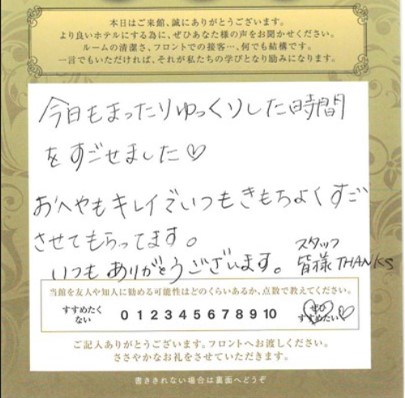 本日はご来館、誠にありがとうございます。
より良いホテルにする為に、ぜひあなた様の声をお聞かせください。
ルームの清潔さ、フロントでの接客…、何でも結構です。
一言でもいただければ、それが私たちの学びとなり励みになります。
今日もまったりゆっくりした時間
をすごせました♡
おへやもキレイでいつもきもちよくすご
させてもらってます。
いつもありがとうございます。スタッフ皆様THANKS
当館を友人や知人に勧める可能性はどのくらいあるか、点数で教えてください。
すすめたくない 0 1 2 3 4 5 6 7 8 9 10 ぜひすすめたい
ご記入ありがとうございます。フロントへお渡しください。
ささやかなお礼をさせていただきます。
書ききれない場合は裏面へどうぞ